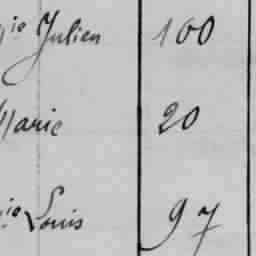 io Julien 100
Marie 20
io Louis 97